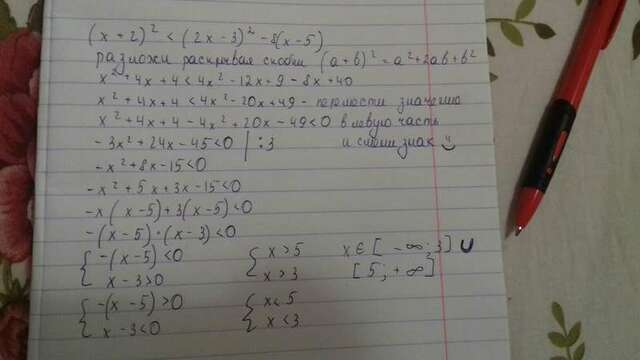 (x+2)² < (2x-3)² - 8(x-5)
разложи раскрывая скобки (a+b)² = a²+2ab+b²
x²+4x+4 < 4x²-12x+9-8x+40
x²+4x+4 < 4x²-20x+49 - перенести значению
x²+4x+4-4x²+20x-49<0 в левую часть
-3x²+24x-45<0 | :3 и смени знак
-x²+8x-15<0
-x²+5x+3x-15<0
-x(x-5)+3(x-5)<0
-(x-5)·(x-3)<0
{ -(x-5)<0 { x>5 x∈[-∞;3] ∪
x-3>0 x>3 [5;+∞]
{ -(x-5)>0 { x<5
x-3<0 x<3